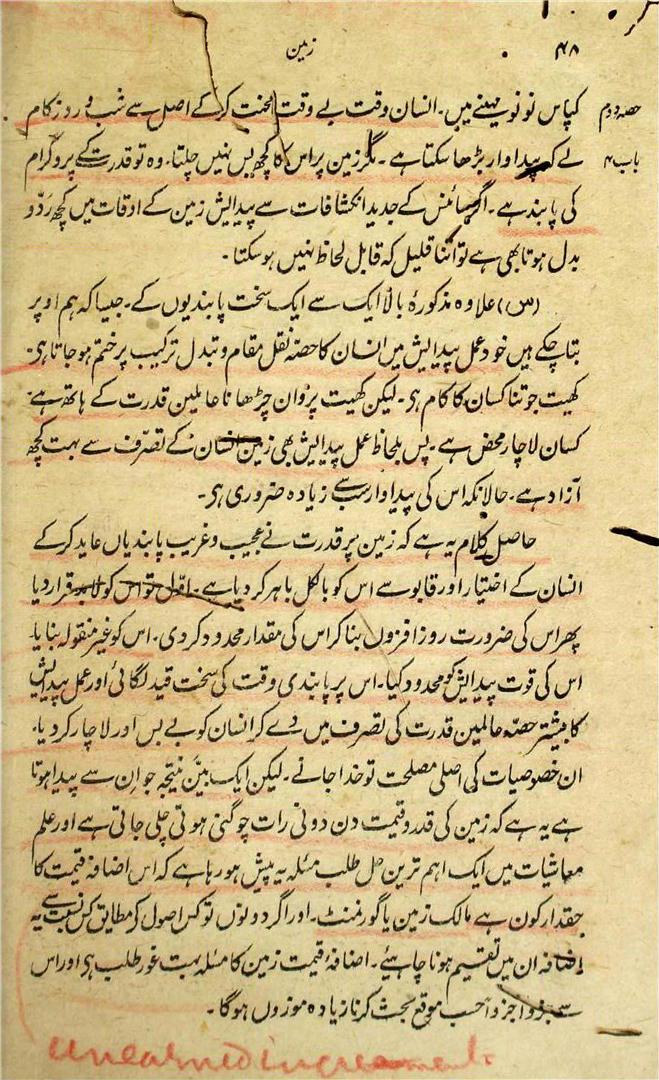 ۴۸
زمین
حصہ دوم
کپاس نو نو مہینے میں۔ انسان وقت بے وقت محنت کرکے اصل سے شب و روز کام
باب ۴
لے کر پیداوار بڑھا سکتا ہے۔ مگر زمین پر اس کا کچھ بس نہیں چلتا۔ وہ تو قدرت کے پروگرام
کی پابند ہے۔ اگر سائنس کے جدید انکشافات سے پیدایش زمین کے اوقات میں کچھ ردّو
بدل ہوتا بھی ہے تو اتنا قلیل کہ قابل لحاظ نہیں ہوسکتا۔
(س) علاوہ مذکورۂ بالا ایک سے ایک سخت پابندیوں کے۔ جیسا کہ ہم اوپر
بتا چکے ہیں خود عمل پیدایش میں انسان کا حصہ نقل مقام و تبدل ترکیب پر ختم ہوجاتا ہی۔
کھیت جوتنا کسان کا کام ہی۔ لیکن کھیت پروان چڑھانا عاملین قدرت کے ہاتھ ہے۔
کسان لاچار محض ہے۔ پس بلحاظ عمل پیدایش بھی زمین انسان کے تصرّف سے بہت کچھ
آزاد ہے۔ حالانکہ اس کی پیداوار سب سے زیادہ ضروری ہی۔
حاصل کلام یہ ہے کہ زمین پر قدرت نے عجیب و غریب پابندیاں عاید کرکے
انسان کے اختیار اور قابو سے اس کو بالکل باہر کردیا ہے۔ اول تو اس کو لابد قرار دیا
پھر اس کی ضرورت روز افزوں بنا کر اس کی مقدار محدود کردی۔ اس کو غیر منقولہ بنایا۔
اس کی قوت پیدایش کو محدود کیا۔ اس پر پابندی وقت کی سخت قید لگائی اور عمل پیدایش
کا بیشتر حصہ عاملین قدرت کی تصرف میں دے کر انسان کو بے بس اور لاچار کردیا۔
ان خصوصیات کی اصلی مصلحت تو خدا جانے۔ لیکن ایک بیّن نتیجہ جو ان سے پیدا ہوتا
ہے یہ ہے کہ زمین کی قدر و قیمت دن دونی رات چوگنی ہوتی چلی جاتی ہے اور علم
معاشیات میں ایک اہم ترین حل طلب مسئلہ یہ پیش ہورہا ہے کہ اس اضافہ قیمت کا
حقدار کون ہے مالک زمین یا گورنمنٹ۔ اور اگر دونوں تو کس اصول کے مطابق کس نسبت سے یہ
اضافہ ان میں تقسیم ہونا چاہیئے۔ اضافہ قیمت زمین کا مسئلہ بہت غور طلب ہی اور اس
سے جزواً جزواً حسب موقع بحث کرنا زیادہ موزوں ہوگا۔
Unearned increament